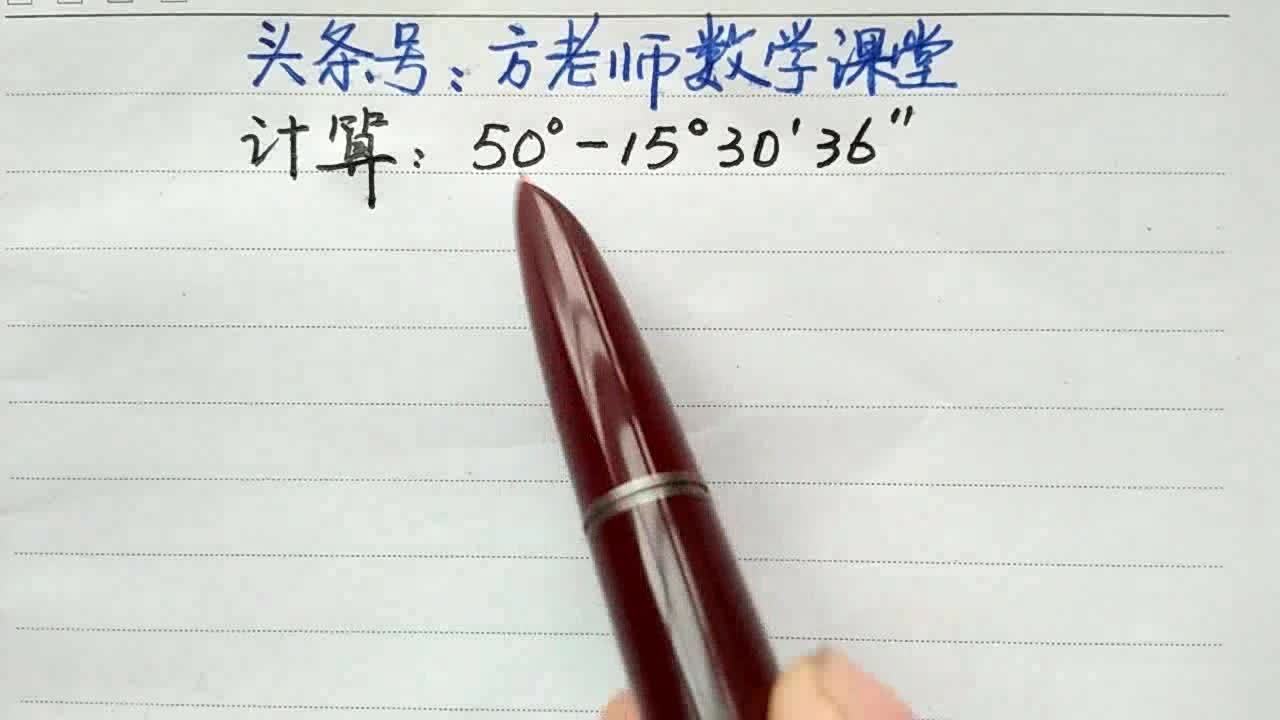 头条号：方老师数学课堂
计算：50°-15°30′36″